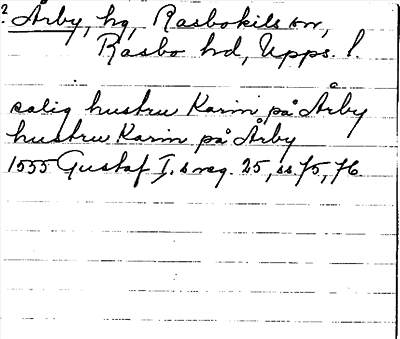 ? Årby, hg, Rasbokils sn,
Rasbo hd, Upps. l.
salig hustru Karin på Årby
hustru Karin på Årby
1555 Gustaf I.s reg. 25, ss. 75, 76